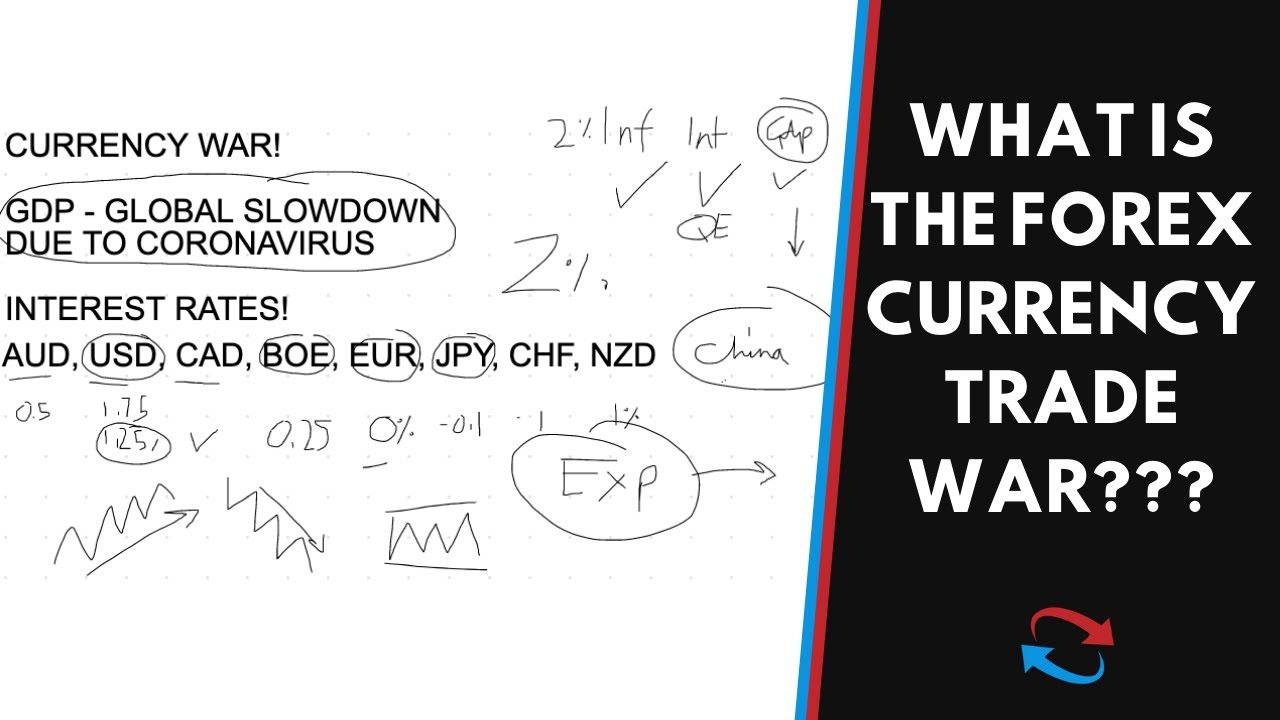 CURRENCY WAR!
GDP - GLOBAL SLOWDOWN
DUE TO CORONAVIRUS
2% Inf Int GDP
QE
2%.
INTEREST RATES!
AUD, USD, CAD, BOE, EUR, JPY, CHF, NZD
China
0.5 1.75
1.25% 0.25 0% -0.1 -1 1%
Exp
WHAT IS
THE FOREX
CURRENCY
TRADE
WAR???